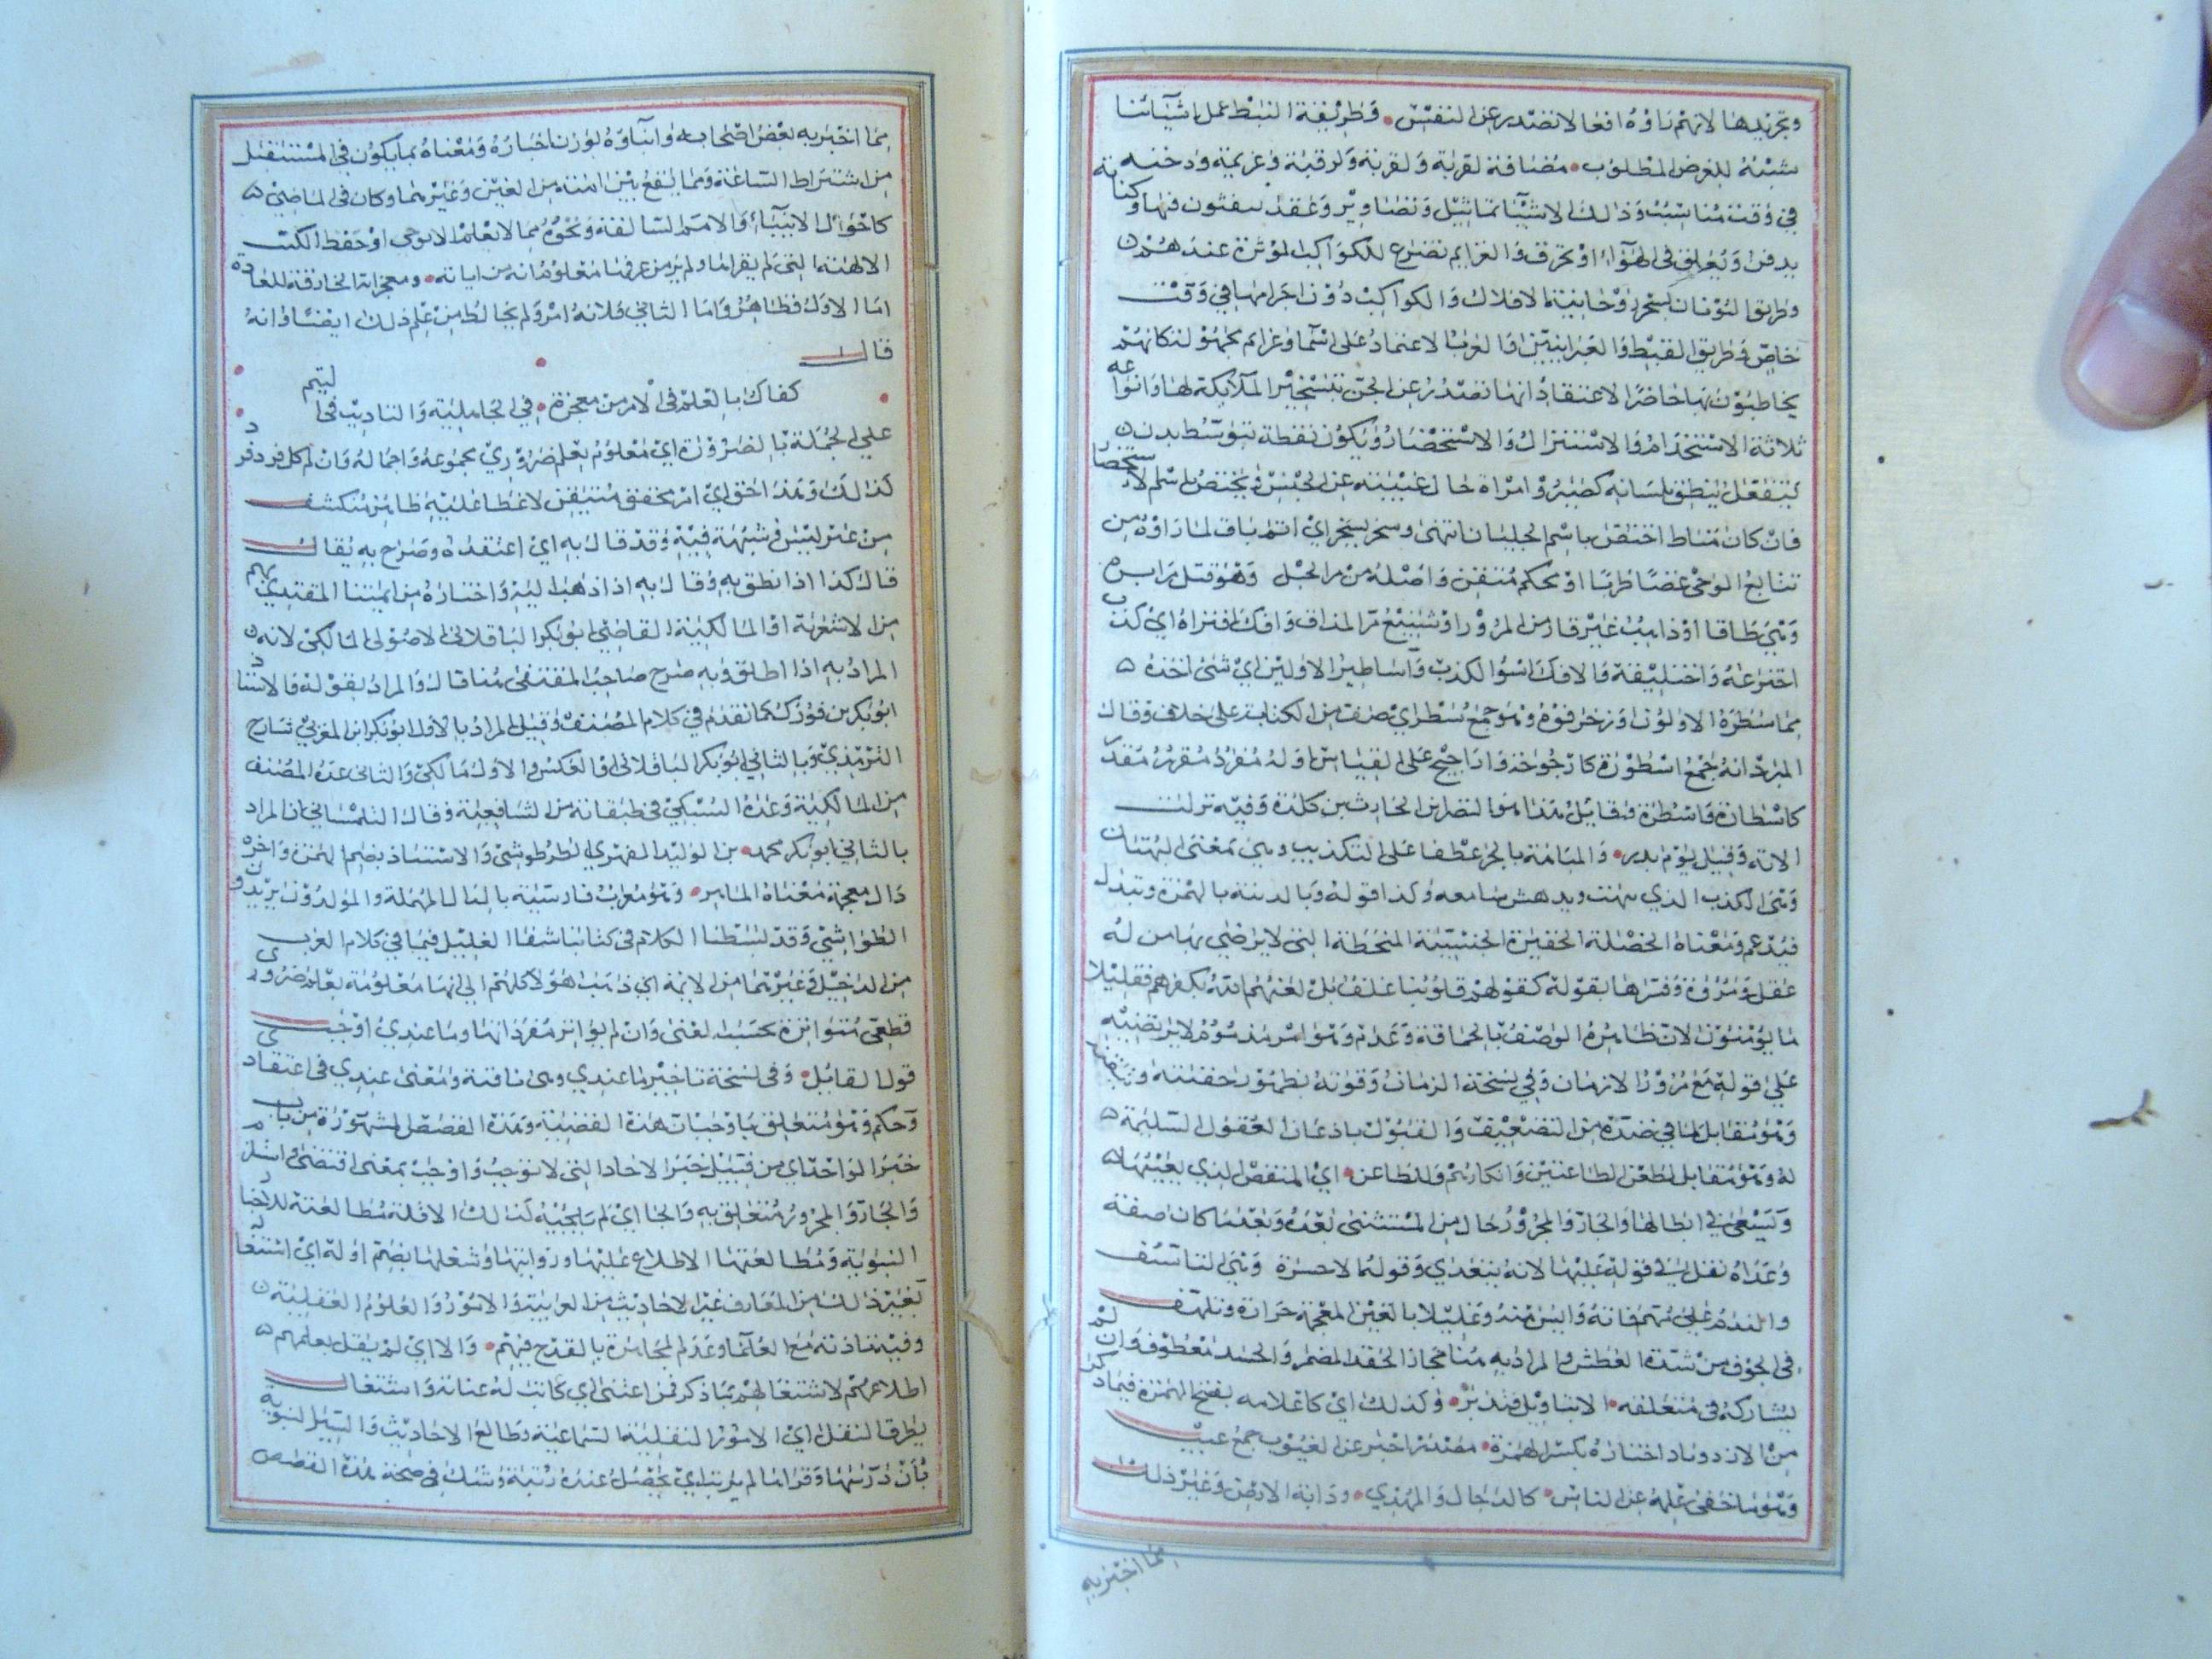 وتجريدها لانهم راوه افعالا تصدر عن النفس وطريقة النبط عمل اشيآئنا
للغرض المطلوب مضافة لقربة و لرقية وعزيمة ودخنه
في وقت مناسب وذالك لاشيآ تماثيل وتصاوير وعقد ينفثون فيها وكتابة
يدفن ويعلق في الهوآ او تحرق والعزايم تضرع للكواكب المؤثرة عندهم
وطريق اليونان تسخير روحانية الافلاك والكواكب دون اجرامها في وقت
خاص وطريق القبط والعبرانيين والعرب الاعتماد على اسما وعزايم مجهولة كانهم
يخاطبون بها حاضرا لاعتقاد انها تصدر عن الجن بتسخير الملآيكة لها وانواعه
ثلاثة الاستخدام والاستنزال والاستحضار ويكون يقظة بتوسط بدن
ينفعل ينطق بلسانه كصبي او امراة حال غيبته عن الحس ويختص باسم الاستحضار
فان كان مناط اختص باسم الجليان انتهى وسحر يسخر اي انتم باق لما راوه من
تتابع الوحي غضا طريا او محكم متقن واصله من مر الحبل وهو فتل مرايره
وهي طاقا او ذاهب غير قار من المرور او شبيع مر المذاق وافك افتراه اي كذب
اخترعه واختليقه فالافك اسوا الكذب وآساطير الاولين اي شئ اخذه
مما سطره الاولون وزخرفوه وهو جمع سطر اي صف من الكتابة على خلاف وقال
المبرد انه جمع اسطورة كارجوحة واراجيح على القياس وله مفرد مقرر مقد
كاسطارة واسطرة وقايل هذا هو النضر بن الحارث بن كلدة وفيه نزلت
الاته وقتل يوم بدر والمباهتة بالجر عطفا على التكذيب وهي بمعنى البهتان
وهي الكذب الذي يبهت ويدهش سامعه وكذا قوله وبالدنيئة بالهمزة وتبدل
فيدغم ومعناه الخصلة الحقيرة الخسيسة المنحطة التي لا يرضى بها من له
عقل ومروة وفسرها بقوله كقولهم قلوبنا غلف بل لعنهم الله بكفرهم فقليلا
ما يؤمنون لان ظاهره الوصف بالحماقة وعدم وهو امر مذموم لا يرتضيه
على قوله مع مرور الازمان وفي نسخة الزمان وقوله بظهور حقيته
وهو مقابل لما في ضده من التضعيف والقبول باذعان العقول السليمة
له وهو مقابل لطعن الطاعنين وانكارهم وللطاعن اي المنقص الذي يعيبها
ويسعى في ابطالها والجار والمجرور حال من المستثنى بعده وبعدما كان صفة
وعداه بقل الى قوله عليها لانه يتعدى وقوله الاحسرة وهي التاسف
والندم على مهم فاته وايس منه وغليلا بالغين المعجمة حرارة وتلهف
في الجوف من شدة العطش والمراد به هنا مجازا الحقد المضمر والحسد معطوف وان لم
يشاركه في متعلقه الا بتاويل فتدبر وكذلك اي كاعلامه بفتح الهمزة فيما ذكر
من الازدوياد اخباره بكسر الهمزة مصدر اخبر عن الغيوب جمع غيب
وهو ما خفى علمه عن الناس كالدجال والمهدي ودابة الارض وغير ذلك
مما اخبر به
مما اخبر به بعض اصحابه وانبآؤه بوزن اخباره ومعناه بما يكون في المستقبل
من اشتراط الساعة ومما يقع بين امته من الفتن وغيرهما وكان في الماضي
كاحوال الانبيآء والامم السالفة ونحوه مما لا يعلم الا بوحي او حفظ الكتب
الالهية التي لم يقراها ولم ير من عرفها معلوم انه من اياته ومعجزاته الخارقة للعادة
اما الاول فظاهر واما الثاني فلانه امي ولم يخالط من علم ذلك ايضا وانه
قال
كفاك بالعلم في الامي معجزة في الجاهلية والتاديب في اليتم
على الجملة بالضرورة اي معلوم بعلم ضروري مجموعه واجماله وان لم كل فرد فرد
كذلك وهذا حق اي امر محقق متيقن لا غطا عليه ظاهر منكشف
من غير لبس وشبهة فيه وقد قال به اي اعتقده وصرح به يقال
قال كذا اذا نطق به وقال به اذا ذهب اليه واختاره من ايمتنا المقتدي بهم
من الاشعرية او المالكية القاضي ابو بكر الباقلاني الاصولي المالكي لانه
المراد به اذا اطلق وبه صرح صاحب المقتفى هنا قال والمراد بقوله والاستاذ
ابو بكر بن فورك كما تقدم في كلام المصنف وقيل المراد بالاول ابو بكر ابن العربي شارح
الترمذي وبالثاني ابو بكر الباقلاني او العكس والاول مالكي والثاني عده المصنف
من المالكية وعده السبكي في طبقاته من الشافعية وقال التلمساني ان المراد
بالثاني ابو بكر محمد بن الوليد الفهري الطرطوشي والاستاذ بضم الهمزة واخره
دال معجمة معناه الماهر وهو معرب فارسية بالدال المهملة والمولدون يريدون
الطواشي وقد بسطنا الكلام في كتابنا شفا الغليل فيما في كلام العرب
من الدخيل وغيرهما من الايمة اي ذهب هؤلا كلهم الى انها معلومة بعلم ضروري
قطعي متواترة بحسب المعنى وان لم يتواتر مفرداتها وما عندي اوجب
قول القايل وفي نسخة تاخير ما عندي وهي نافية ومعنى عندي في اعتقادي
وحكم وهو متعلق باوجب ان هذه القضية وهذه القصص المشهورة من باب
خبر الواحد اي من قبيل خبر الاحاد التي لا توجب واوجب بمعنى اقتضى واستلزم
والجار والمجرور متعلق به والجا اي لم يلجيه لذلك الا قلة مطالعته للاخبار
النبوية ومطالعتها الاطلاع عليها وروايتها وشغلها بضم اوله اي اشتغاله
بغير ذلك من المعارف غير الاحاديث من العربية والامور والعلوم العقلية
وفيه مناذته مع العلما وعدم المجاهرة بالقدح فيهم والا اي لم يقل بعلمهم
اطلاعهم لاشتغالهم بما ذكر فمن اعتنى اي كانت له عناية واشتغال
بطرق النقل اي الامور النقلية السماعية وطالع الاحاديث والسير النبوية
بان درسها وقراها لم يرتب اي يحصل عنده رتبة وشك في صحة هذه القصص